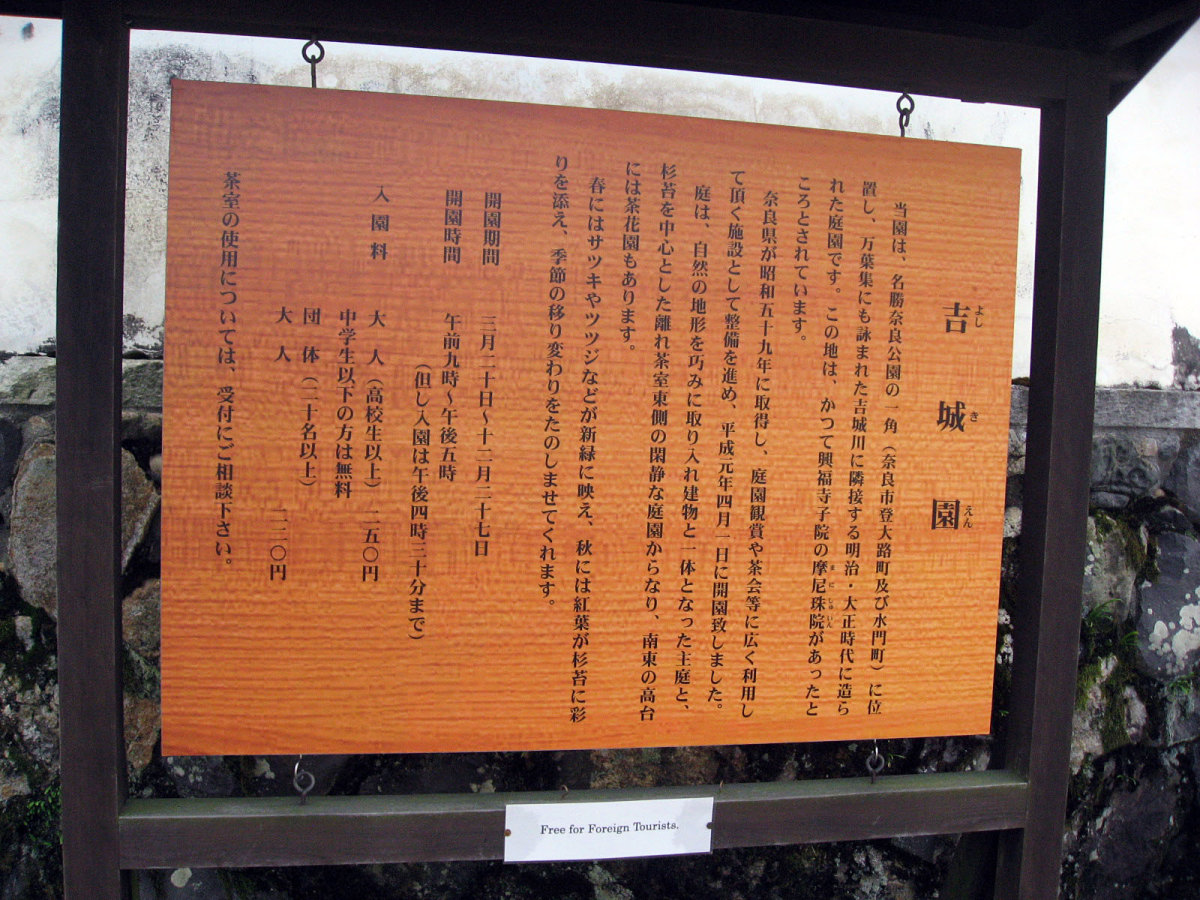 吉城園
よしきえん
当園は、名勝奈良公園の一角（奈良市登大路町及び水門町）に位
置し、万葉集にも詠まれた吉城川に隣接する明治・大正時代に造ら
れた庭園です。この地は、かつて興福寺子院の摩尼珠院があったと
まにしゅいん
ころとされています。
奈良県が昭和五十九年に取得し、庭園観賞や茶会等に広く利用し
て頂く施設として整備を進め、平成元年四月一日に開園致しました。
庭は、自然の地形を巧みに取り入れ建物と一体となった主庭と、
杉苔を中心とした離れ茶室東側の閑静な庭園からなり、南東の高台
には茶花園もあります。
春にはサツキやツツジなどが新緑に映え、秋には紅葉が杉苔に彩
りを添え、季節の移り変わりをたのしませてくれます。
開園期間 三月二十日～十二月二十七日
開園時間 午前九時～午後五時
（但し入園は午後四時三十分まで）
入園料 大人（高校生以上） 二五〇円
中学生以下の方は無料
団体（二十名以上）
大人 二二〇円
茶室の使用については、受付にご相談下さい。
Free for Foreign Tourists.